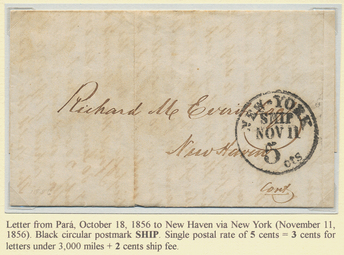 NEW-YORK
SHIP
NOV 11
5
cts
Richard M
New Haven
Cont.
Letter from Pará, October 18, 1856 to New Haven via New York (November 11,
1856). Black circular postmark SHIP. Single postal rate of 5 cents = 3 cents for
letters under 3,000 miles + 2 cents ship fee.